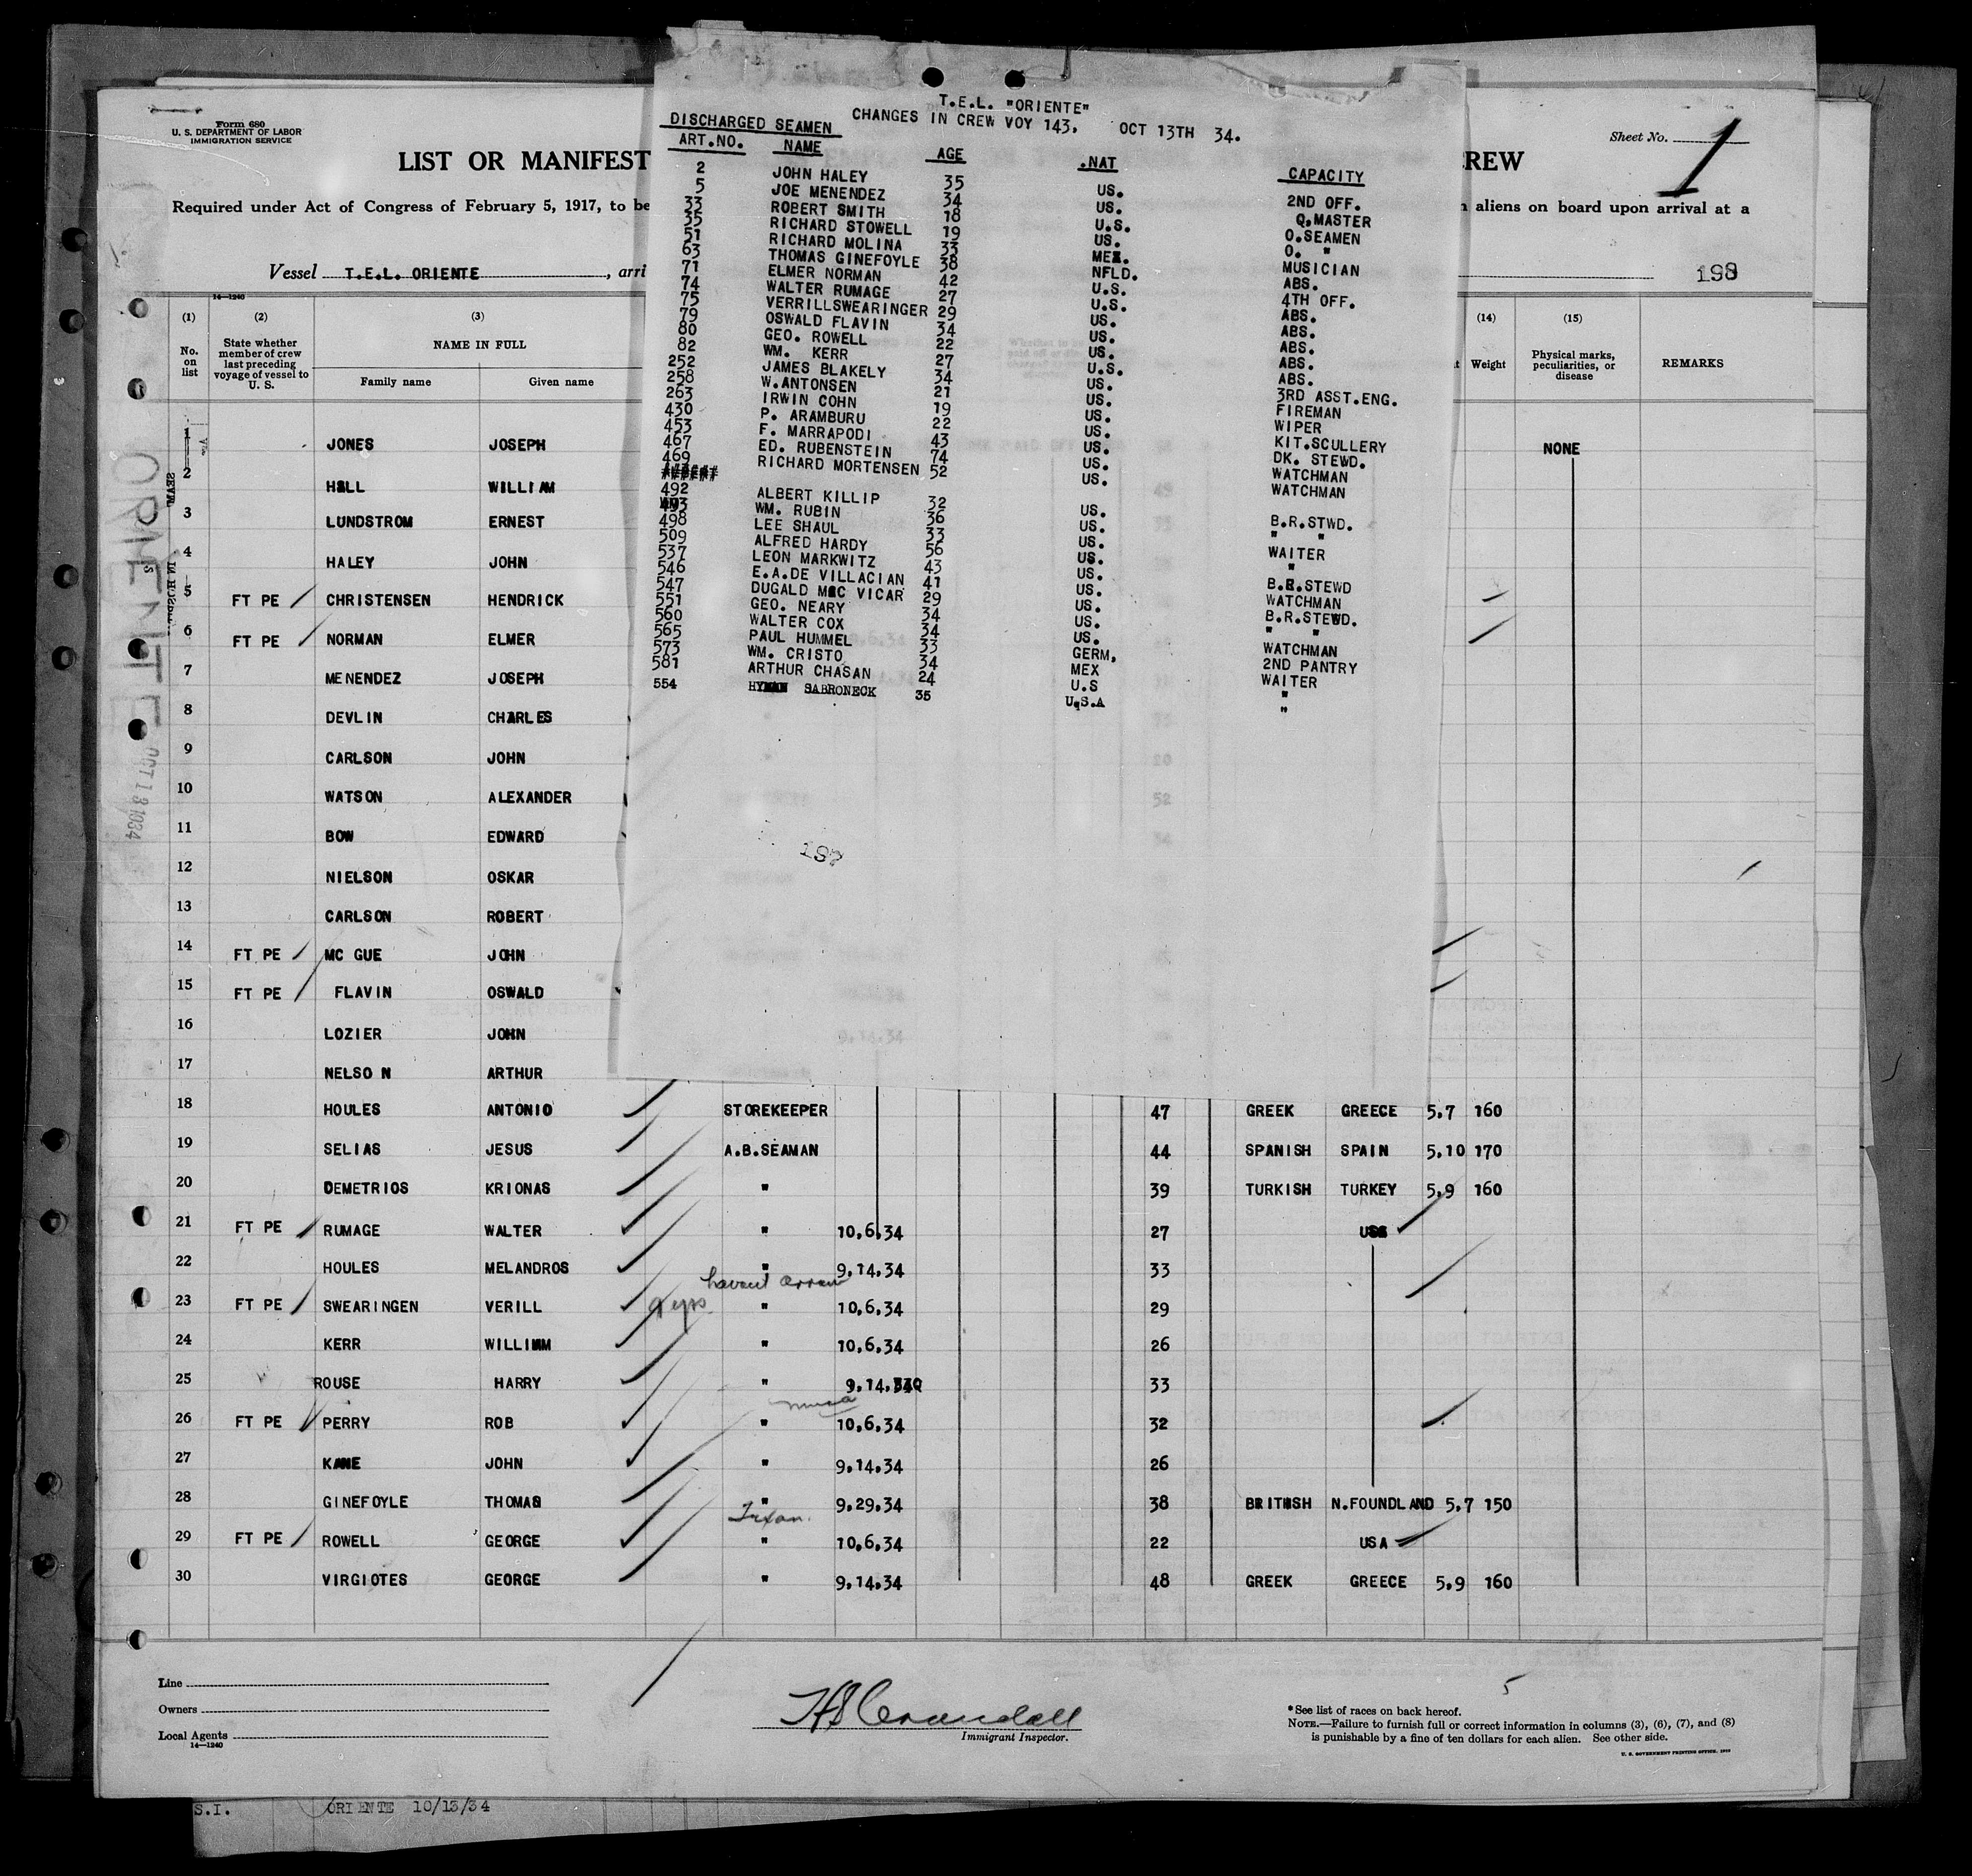 Form 680
U. S. DEPARTMENT OF LABOR
IMMIGRATION SERVICE
LIST OR MANIFEST
REW
Sheet No. 1
Required under Act of Congress of February 5, 1917, to be
aliens on board upon arrival at a
Vessel T.E.L. ORIENTE, arri
198
T.E.L. "ORIENTE"
CHANGES IN CREW VOY 143. OCT 13TH 34.
DISCHARGED SEAMEN
ART.NO. NAME AGE .NAT CAPACITY
2 JOHN HALEY 35 US. 2ND OFF.
5 JOE MENENDEZ 34 US. Q.MASTER
33 ROBERT SMITH 18 U.S. O.SEAMEN
35 RICHARD STOWELL 19 US. O. "
51 RICHARD MOLINA 33 MEX. MUSICIAN
63 THOMAS GINEFOYLE 38 NFLD. ABS.
71 ELMER NORMAN 42 U.S. 4TH OFF.
74 WALTER RUMAGE 27 U.S. ABS.
75 VERRILLSWEARINGER 29 US. ABS.
79 OSWALD FLAVIN 34 US. ABS.
80 GEO. ROWELL 22 US. ABS.
82 WM. KERR 27 U.S. ABS.
252 JAMES BLAKELY 34 US. 3RD ASST.ENG.
258 W.ANTONSEN 21 US. FIREMAN
263 IRWIN COHN 19 US. WIPER
430 P. ARAMBURU 22 US. KIT.SCULLERY
453 F. MARRAPODI 43 US. DK. STEWD.
467 ED. RUBENSTEIN 74 US. WATCHMAN
469 RICHARD MORTENSEN 52 US. WATCHMAN
492 ALBERT KILLIP 32 US. B.R.STWD.
493 WM. RUBIN 36 US. " "
498 LEE SHAUL 33 US. WAITER
509 ALFRED HARDY 56 US. "
537 LEON MARKWITZ 43 US. B.R.STEWD
546 E.A.DE VILLACIAN 41 US. WATCHMAN
547 DUGALD MAC VICAR 29 US. B.R.STEWD.
551 GEO. NEARY 34 US. " "
560 WALTER COX 34 US. WATCHMAN
565 PAUL HUMMEL 33 GERM, 2ND PANTRY
573 WM. CRISTO 34 MEX WAITER
581 ARTHUR CHASAN 24 U.S "
554 HYMAN SABRONECK 35 U.S.A "
187
14—1240
(1) (2) (3) (14) (15)
No. on list
State whether member of crew last preceding voyage of vessel to U. S.
NAME IN FULL
Family name Given name
Weight
Physical marks, peculiarities, or disease
REMARKS
ORIENTE OCT 13 1934
1 JONES JOSEPH NONE
2 HALL WILLIAM
3 LUNDSTROM ERNEST
4 HALEY JOHN
5 FT PE CHRISTENSEN HENDRICK
6 FT PE NORMAN ELMER
7 MENENDEZ JOSEPH
8 DEVLIN CHARLES
9 CARLSON JOHN
10 WATSON ALEXANDER
11 BOW EDWARD
12 NIELSON OSKAR
13 CARLSON ROBERT
14 FT PE MC GUE JOHN
15 FT PE FLAVIN OSWALD
16 LOZIER JOHN
17 NELSO N ARTHUR
18 HOULES ANTONIO STOREKEEPER 47 GREEK GREECE 5,7 160
19 SELIAS JESUS A.B.SEAMAN 44 SPANISH SPAIN 5,10 170
20 DEMETRIOS KRIONAS " 39 TURKISH TURKEY 5,9 160
21 FT PE RUMAGE WALTER " 10,6,34 27 USA
22 HOULES MELANDROS " 9,14,34 33
23 FT PE SWEARINGEN VERILL " 10,6,34 29
24 KERR WILLIAM " 10,6,34 26
25 ROUSE HARRY " 9,14,34 33
26 FT PE PERRY ROB " 10,6,34 32
27 KANE JOHN " 9,14,34 26
28 GINEFOYLE THOMAS " 9,29,34 38 BRITISH N.FOUNDLAND 5,7 150
29 FT PE ROWELL GEORGE " 10,6,34 22 USA
30 VIRGIOTES GEORGE " 9,14,34 48 GREEK GREECE 5,9 160
Line
Owners
Local Agents
14—1240
Immigrant Inspector.
5
* See list of races on back hereof.
NOTE.—Failure to furnish full or correct information in columns (3), (6), (7), and (8)
is punishable by a fine of ten dollars for each alien. See other side.
U. S. GOVERNMENT PRINTING OFFICE
S.I. ORIENTE 10/13/34